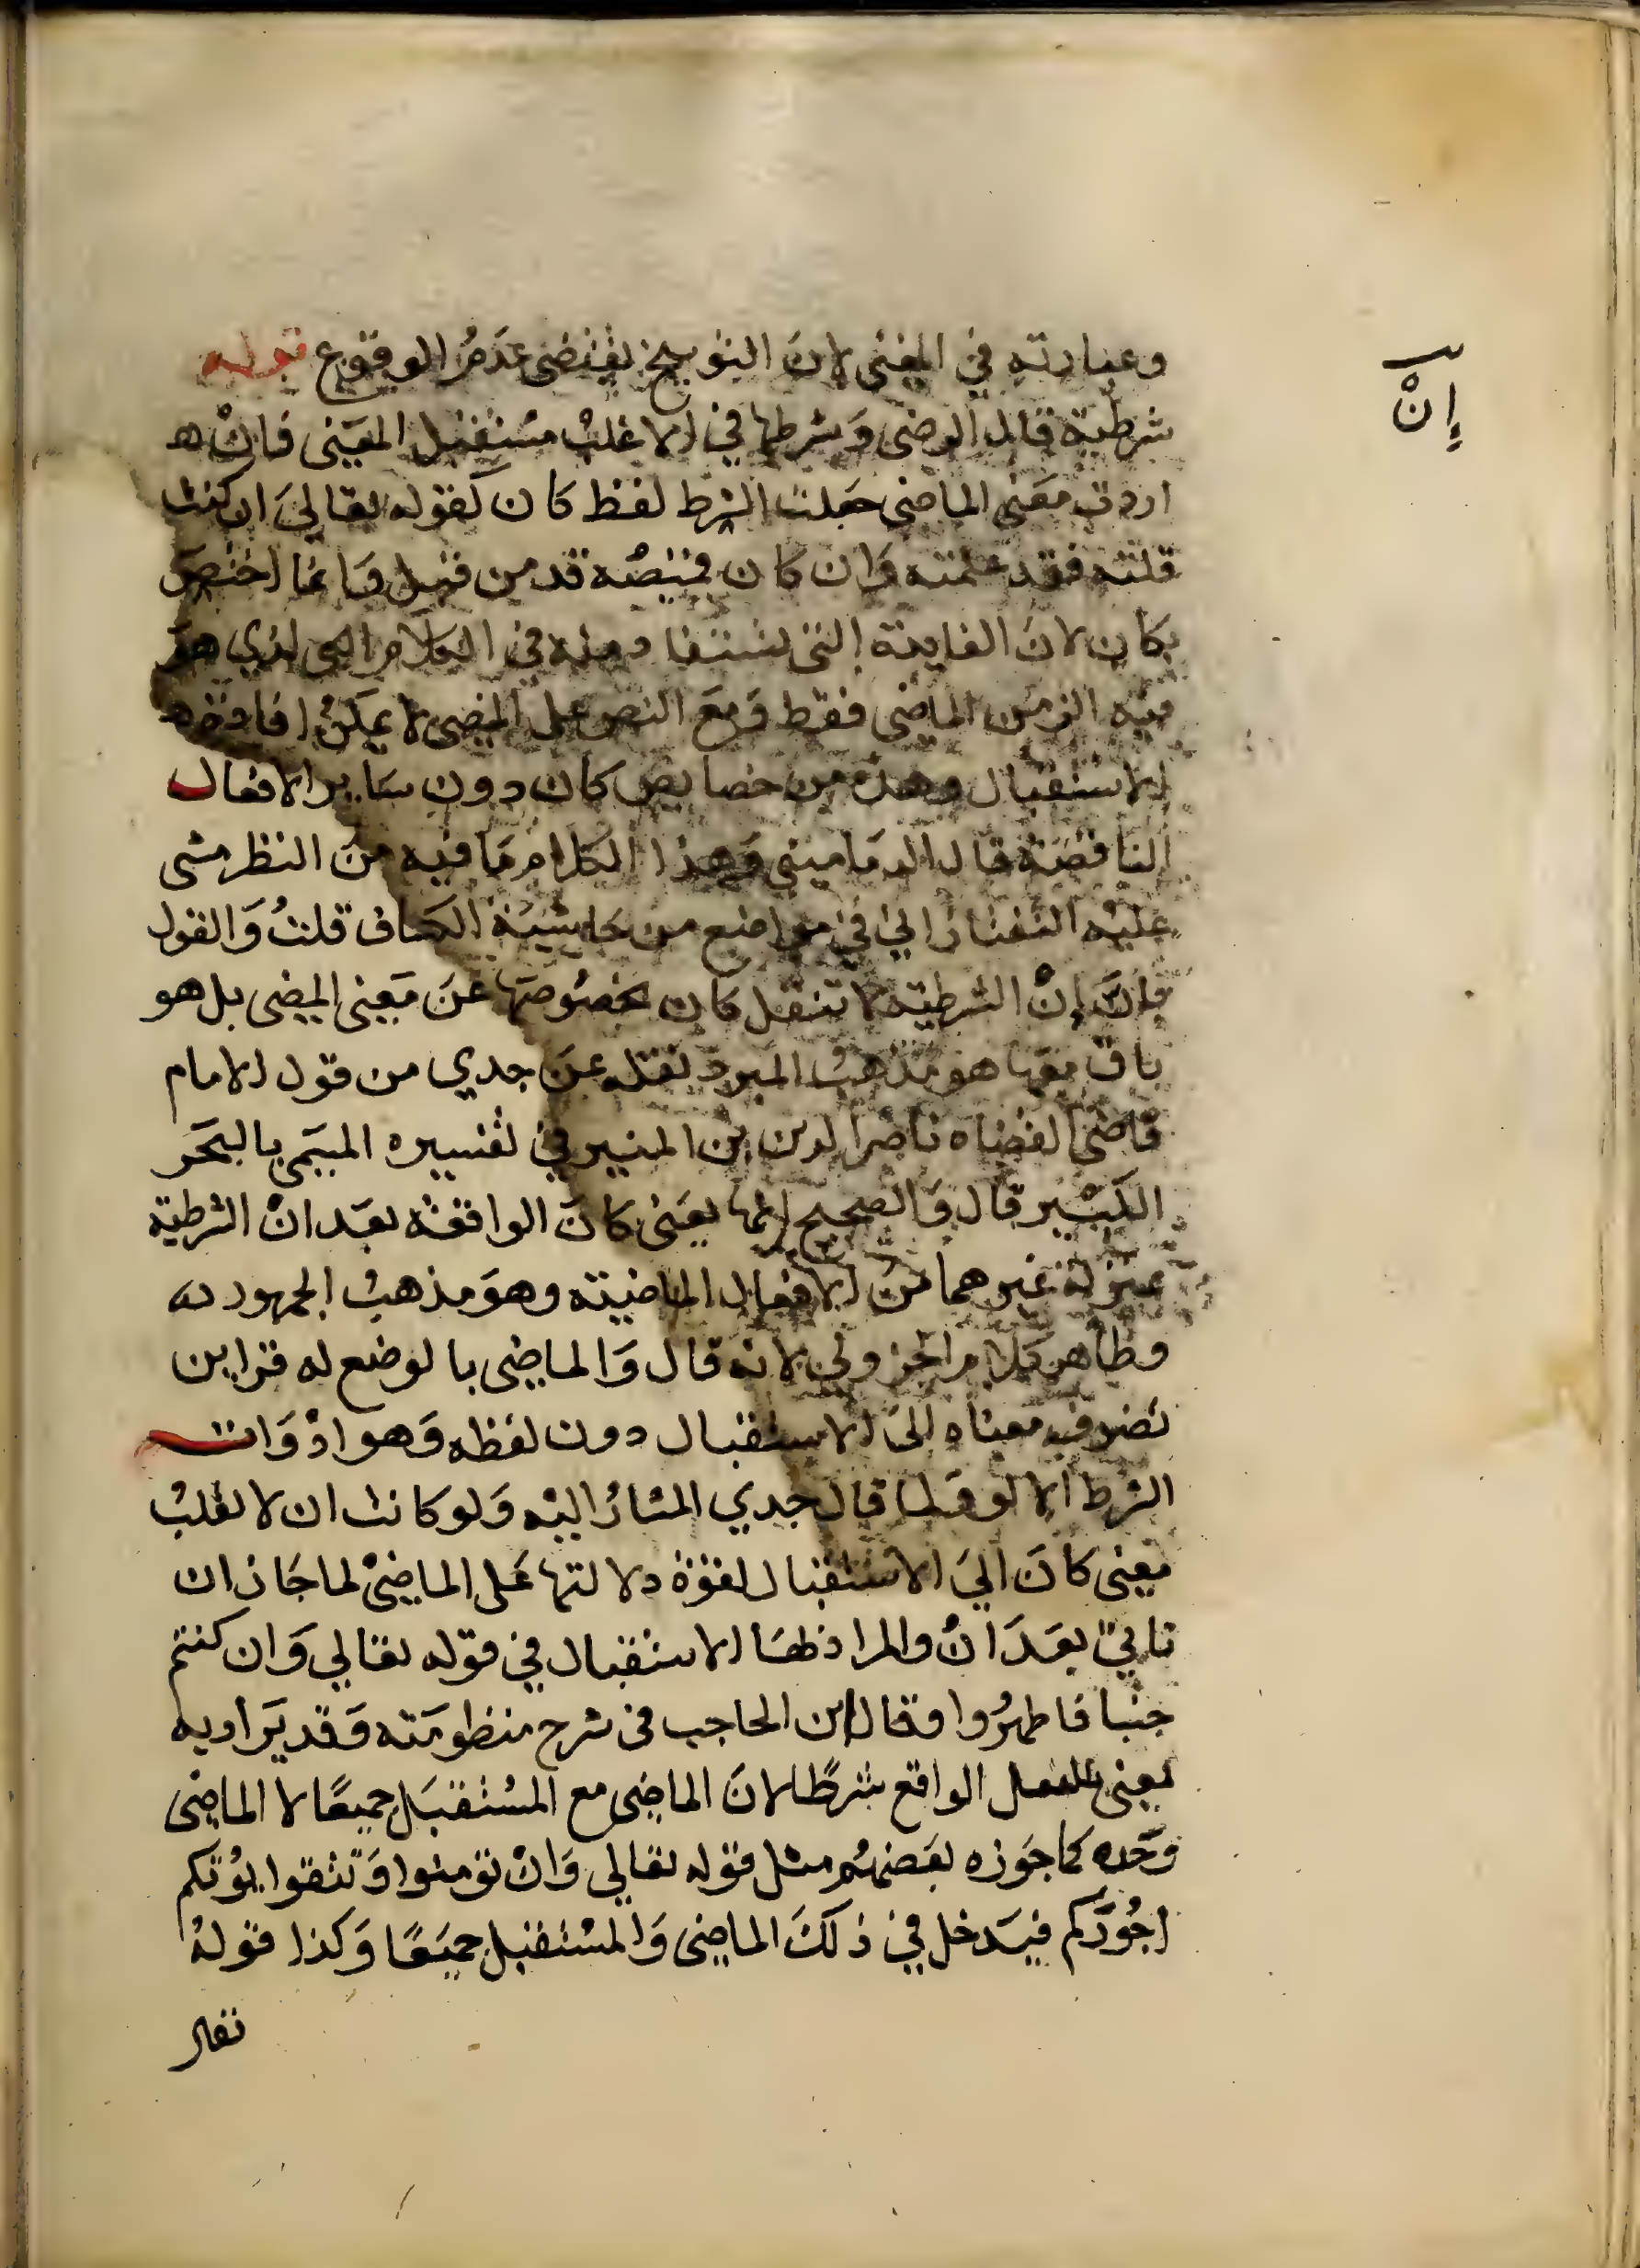 إنّ
وعبارته في المغني لان التوبيخ يقتضي عدم الوقوع قوله
شرطية قال الرضي وشرطها في الاغلب مستقبل المعنى فان
اردت معنى الماضي جعلت الشرط لفظ كان كقوله تعالى ان كنت
قلته فقد علمته وان كان قميصه قد من قبل وانما اختص
بكان لان الفايدة التي تستفاد منه في الكلام الذي هو
فيه الزمن الماضي فقط ومع النص على المضي لا يمكن افادة
الاستقبال وهذه من خصايص كان دون ساير الافعال
الناقصة قال الدماميني وهذا الكلام مما فيه من النظر مشى
عليه التفتازاني في مواضع من حاشية الكشاف قلت والقول
بان إن الشرطية لا تنقل كان بخصوصها عن معنى المضي بل هو
باق معها هو مذهب المبرد نقله عن جدي من قول الامام
قاضي القضاه ناصر الدين بن المنير في تفسيره المسمى بالبحر
الكبير قال والصحيح انها يعنى كان الواقعة بعد ان الشرطية
بمنزلة غيرها من الافعال الماضية وهو مذهب الجمهور
وظاهر كلام الجزولي لانه قال والماضي بالوضع له قراين
تصرف معناه الى الاستقبال دون لفظه وهو ادوات
الشرط الا لو ولما قال جدي المشار اليه ولو كانت ان لا تقلب
معنى كان الى الاستقبال لقوة دلالتها على الماضي لما جاز ان
تاتي بعد ان والمراد بها الاستقبال في قوله تعالى وان كنتم
جنبا فاطهروا وقال ابن الحاجب في شرح منظومته وقد يراد به
معنى الفعل الواقع شرطا لان الماضي مع المستقبل جميعا لا الماضي
وحده كما جوزه بعضهم مثل قوله تعالى وان تومنوا وتتقوا يوتكم
اجوركم فيدخل في ذلك الماضي والمستقبل جميعا وكذا قوله
تعالى